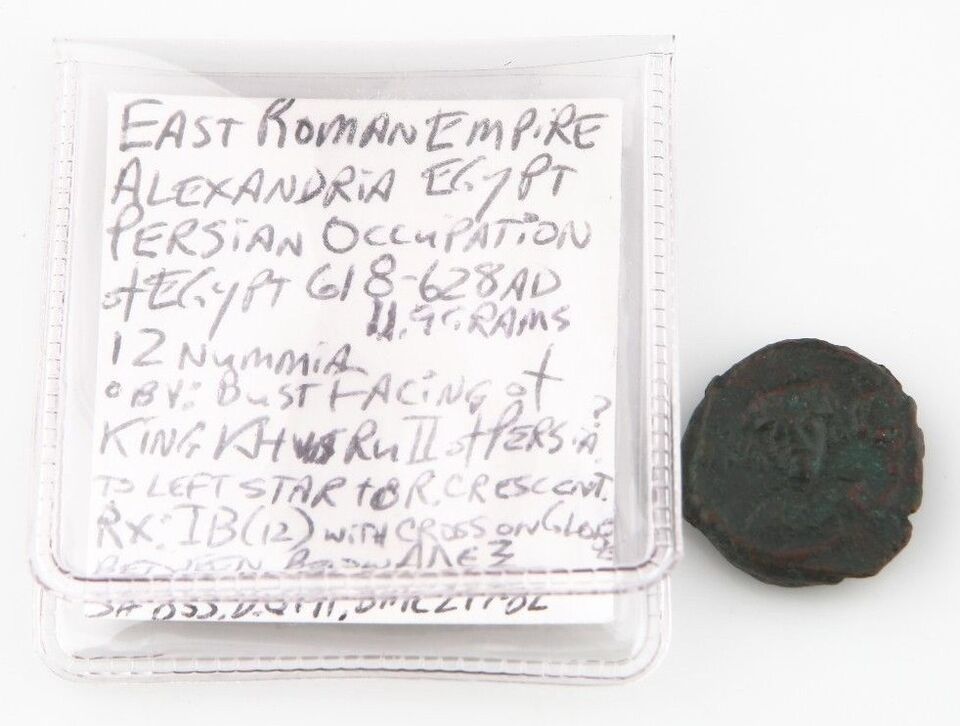 EAST ROMAN EMPIRE
ALEXANDRIA EGYPT
PERSIAN OCCUPATION
of EGYPT 618-628AD
11.9 GRAMS
12 NUMMIA
OBV: BUST FACING of
KING KHUSRU II of PERSIA ?
TO LEFT STAR to R. CRESCENT.
RX: IB(12) with CROSS ON GLOBE
BETWEEN BELOW